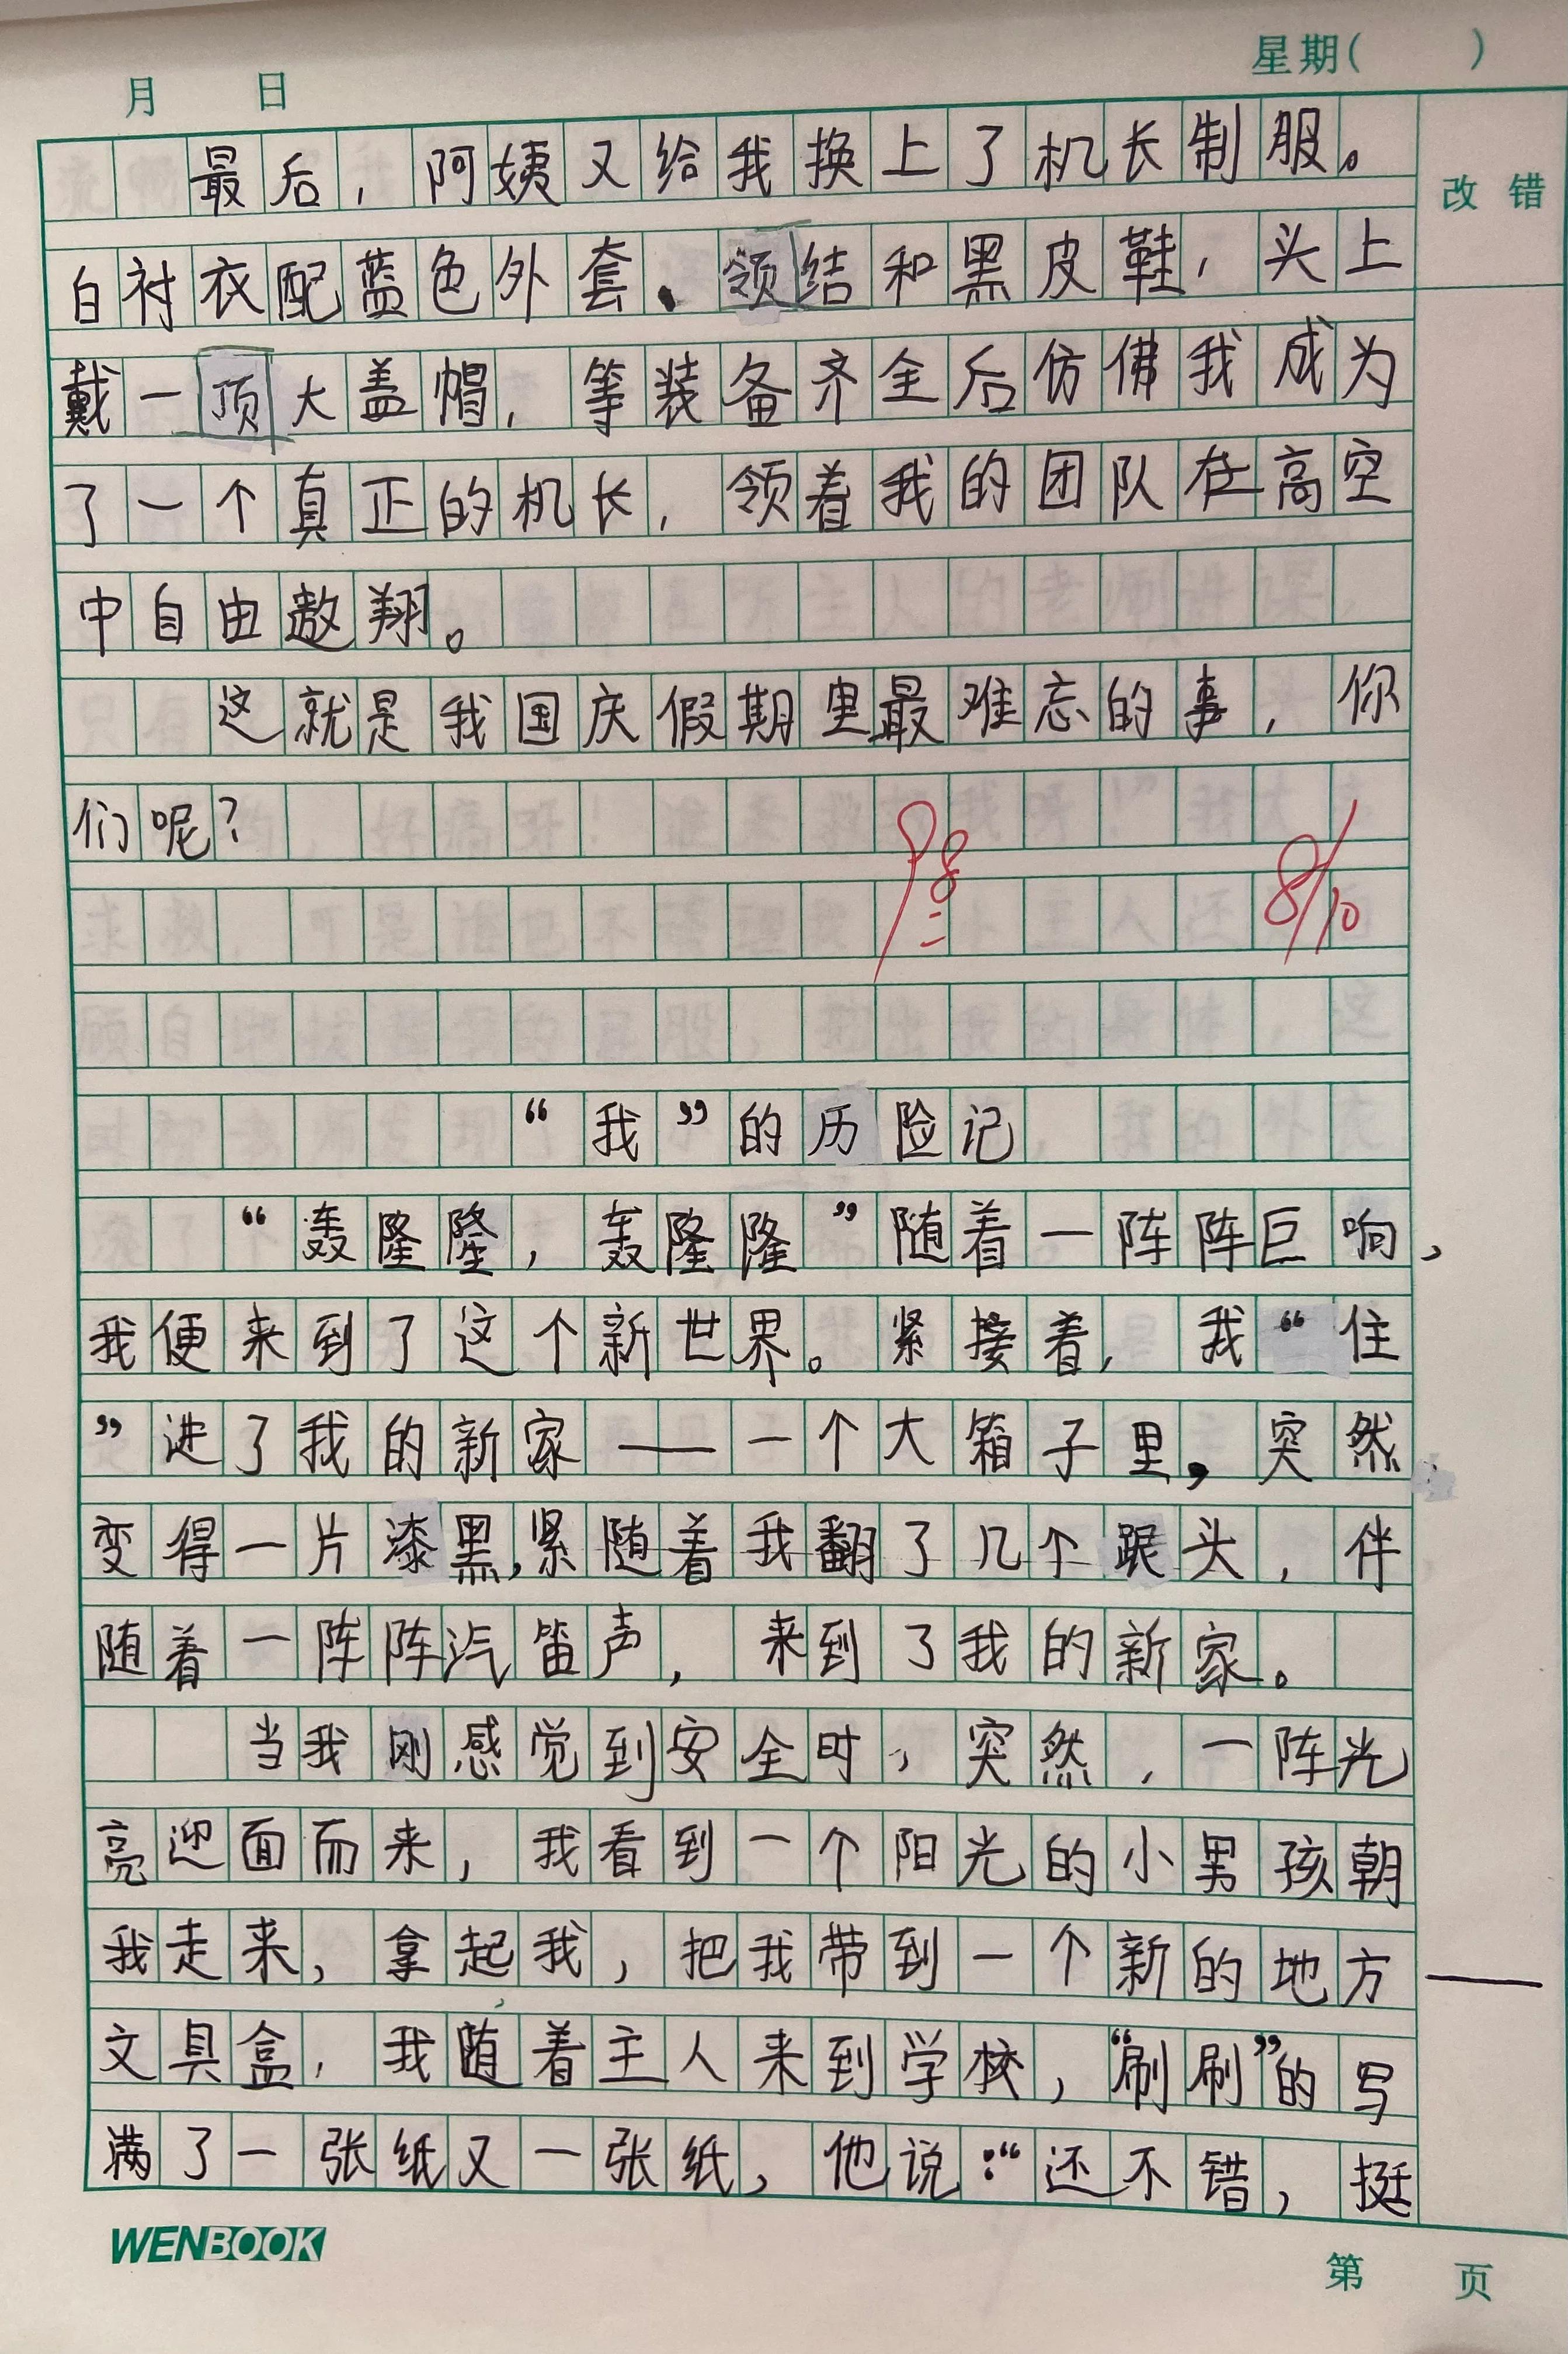 月 日 星期( )
改 错
最后，阿姨又给我换上了机长制服。
白衬衣配蓝色外套、领结和黑皮鞋，头上
戴一顶大盖帽，等装备齐全后仿佛我成为
了一个真正的机长，领着我的团队在高空
中自由遨翔。
这就是我国庆假期里最难忘的事，你
们呢？
98
8/10
“我”的历险记
“轰隆隆，轰隆隆”随着一阵阵巨响，
我便来到了这个新世界。紧接着，我“住
”进了我的新家——一个大箱子里，突然
变得一片漆黑，紧随着我翻了几个跟头，伴
随着一阵阵汽笛声，来到了我的新家。
当我刚感觉到安全时，突然，一阵光
亮迎面而来，我看到一个阳光的小男孩朝
我走来，拿起我，把我带到一个新的地方——
文具盒，我随着主人来到学校，“刷刷”的写
满了一张纸又一张纸，他说：“还不错，挺
WENBOOK
第 页